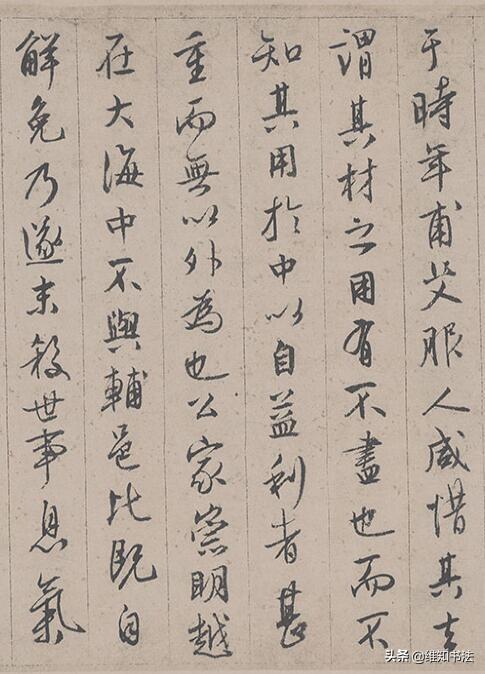 于時年甫艾服人咸惜其去
謂其材之用有不盡也而不
知其用於中以自益利者甚
重而無以外為也公家崇明越
在大海中不與輔邑比既自
解免乃遂末殺世事息氣
头条 @维知书法